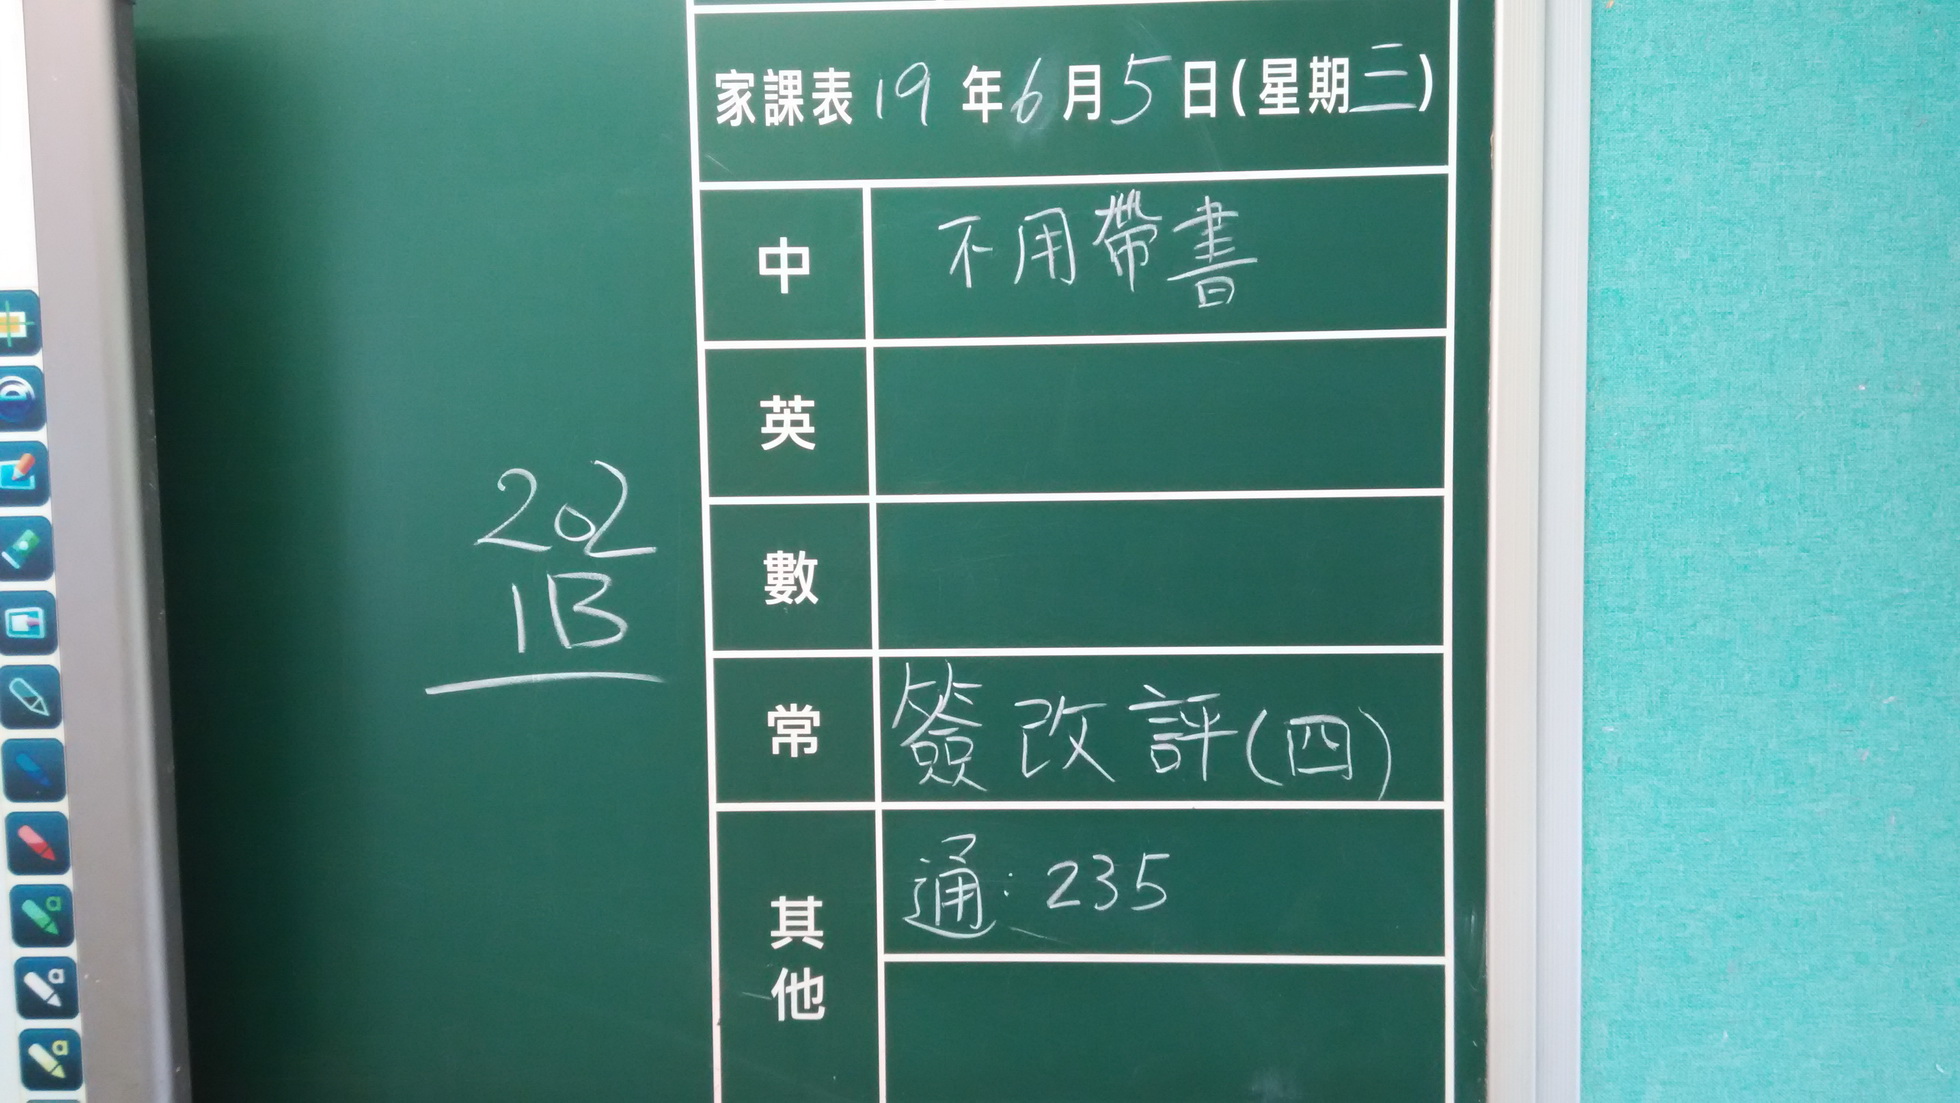 家課表 19 年 6 月 5 日(星期三)
中 不用帶書
英
數
常 簽改評(四)
其他 通: 235
202
1B